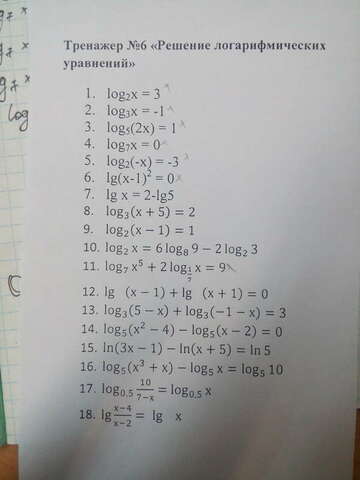 g₇ x
Тренажер №6 «Решение логарифмических
уравнений»
1. log₂x = 3
2. log₃x = -1
3. log₅(2x) = 1
4. log₇x = 0
5. log₂(-x) = -3
6. lg(x-1)² = 0
7. lg x = 2-lg5
8. log₃(x + 5) = 2
9. log₂(x − 1) = 1
10. log₂ x = 6 log₈ 9 − 2 log₂ 3
11. log₇ x⁵ + 2 log_{1/7} x = 9
12. lg (x − 1) + lg (x + 1) = 0
13. log₃(5 − x) + log₃(−1 − x) = 3
14. log₅(x² − 4) − log₅(x − 2) = 0
15. ln(3x − 1) − ln(x + 5) = ln 5
16. log₅(x³ + x) − log₅ x = log₅ 10
17. log₀,₅ 10/(7−x) = log₀,₅ x
18. lg (x−4)/(x−2) = lg x